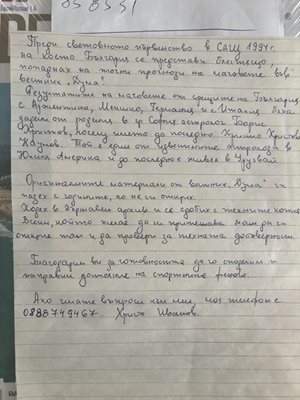 Преди световното първенство в САЩ 1994г.
на което България се представи блестящо,
попаднах на точни прогнози на мачовете във
вестник „Дума“.
Резултатите на мачовете от срещите на България
с Аржентина, Мексико, Германия и Италия бяха
дадени от родения в гр. София астролог Борис
Христов, носещ името до последно Христо Христов
Наумов. Той е един от известните астролози в
Южна Америка и до последно е живял в Уругвай.
Оригиналните материали от вестник „Дума“ ги
пазех с годините, но не ги открих.
Търсех в държавен архив и се сдобих с техните копия.
Всеки, който желае да ги притежава може да ги
открие там и да провери за тяхната достоверност.
Благодарим ви за готовността да го споделим и
направим достояние на спортните
Ако имате въпроси към мен, моя телефон е
0888749467. Христо Иванов.